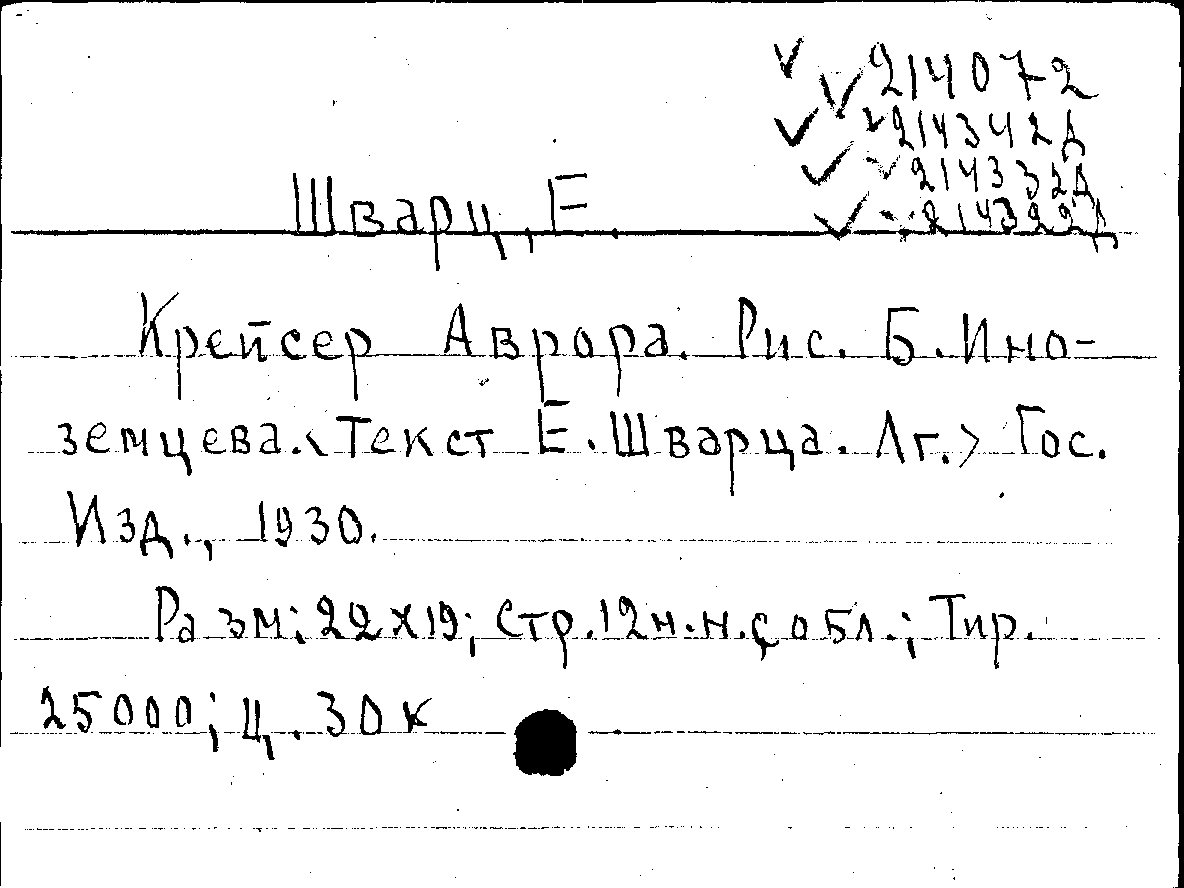 214072
214342Д
214332Д
214322Д
Шварц, Е.
Крейсер Аврора. Рис. Б. Ино-
земцева. <Текст Е. Шварца. Лг.> Гос.
Изд., 1930.
Разм; 22х19; стр. 12 н.н. с обл.; Тир.
25000; ц. 30 к